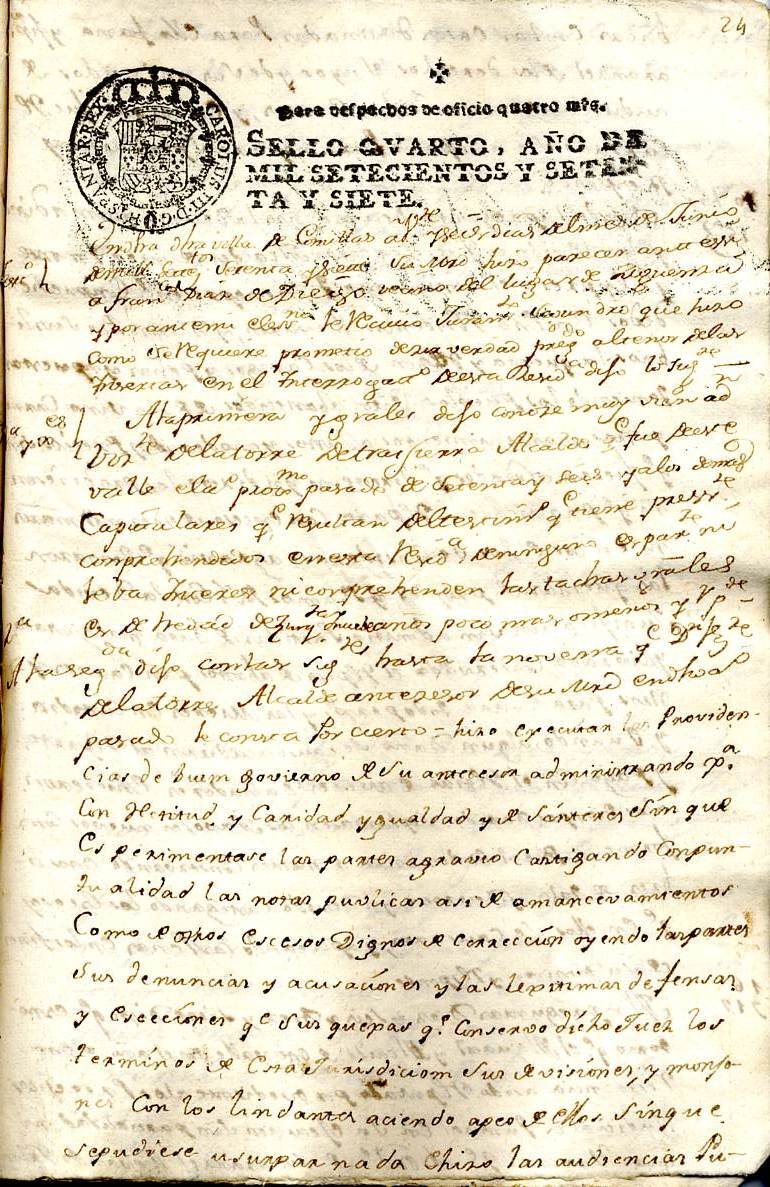 24
CAROLUS III D G HISPANIAR REX
Para despachos de oficio quatro mrs.
SELLO QVARTO, AÑO DE
MIL SETECIENTOS Y SETEN-
TA Y SIETE.
En dha villa de Comillas a y seis dias del mes de Junio
de mill setetos setenta y siete su mrd hizo parecer ante si
a Franco Diaz de vecino del lugar de Ruiguenza
y por ante mi el essno le recivio Juramto que hizo
como se requiere prometio decir verdad pregdo al tenor de las
en el Interrogato de esta Residca dijo lo sigte
Ala primera y grales dijo conoce muy vien a Dn
de la torre de trasierra Alcalde qe fue de este
valle el año proximo pasado de setenta y seis y a los demas
Capitulares qe resultan del testimo qe tiene preste
comprehendidos en esta Resida de ninguno es parte ni
lleba Interes ni comprehenden las tachas grales
es de hedad de años poco mas o menos y rde
2a
A la segda dijo con las sigtes hasta la novena qe Dn
de la torre Alcalde antecesor de su mrd en dho año
pasado le consta por cierto = hizo executar las Providen-
cias de buen govierno de su antecesor administrando
Con Retitud y Caridad ygualdad y desinteres Sin que
Esperimentase las partes agravio Castigando Conpun-
tualidad las notas publicas asi de amancevamientos
Como de otros escesos Dignos de correccion oyendo las partes
Sus denuncias y acusaciones y las lexitimas defensas
y esecciones qe Sus quepas qe Conservo dicho Juez los
terminos de esta Jurisdiciom Sus divisiones, y monjo-
nes Con los lindantes aciendo apeo de ellos Sinque
sepudiese usurpar nada e hizo las audiencias Pu-